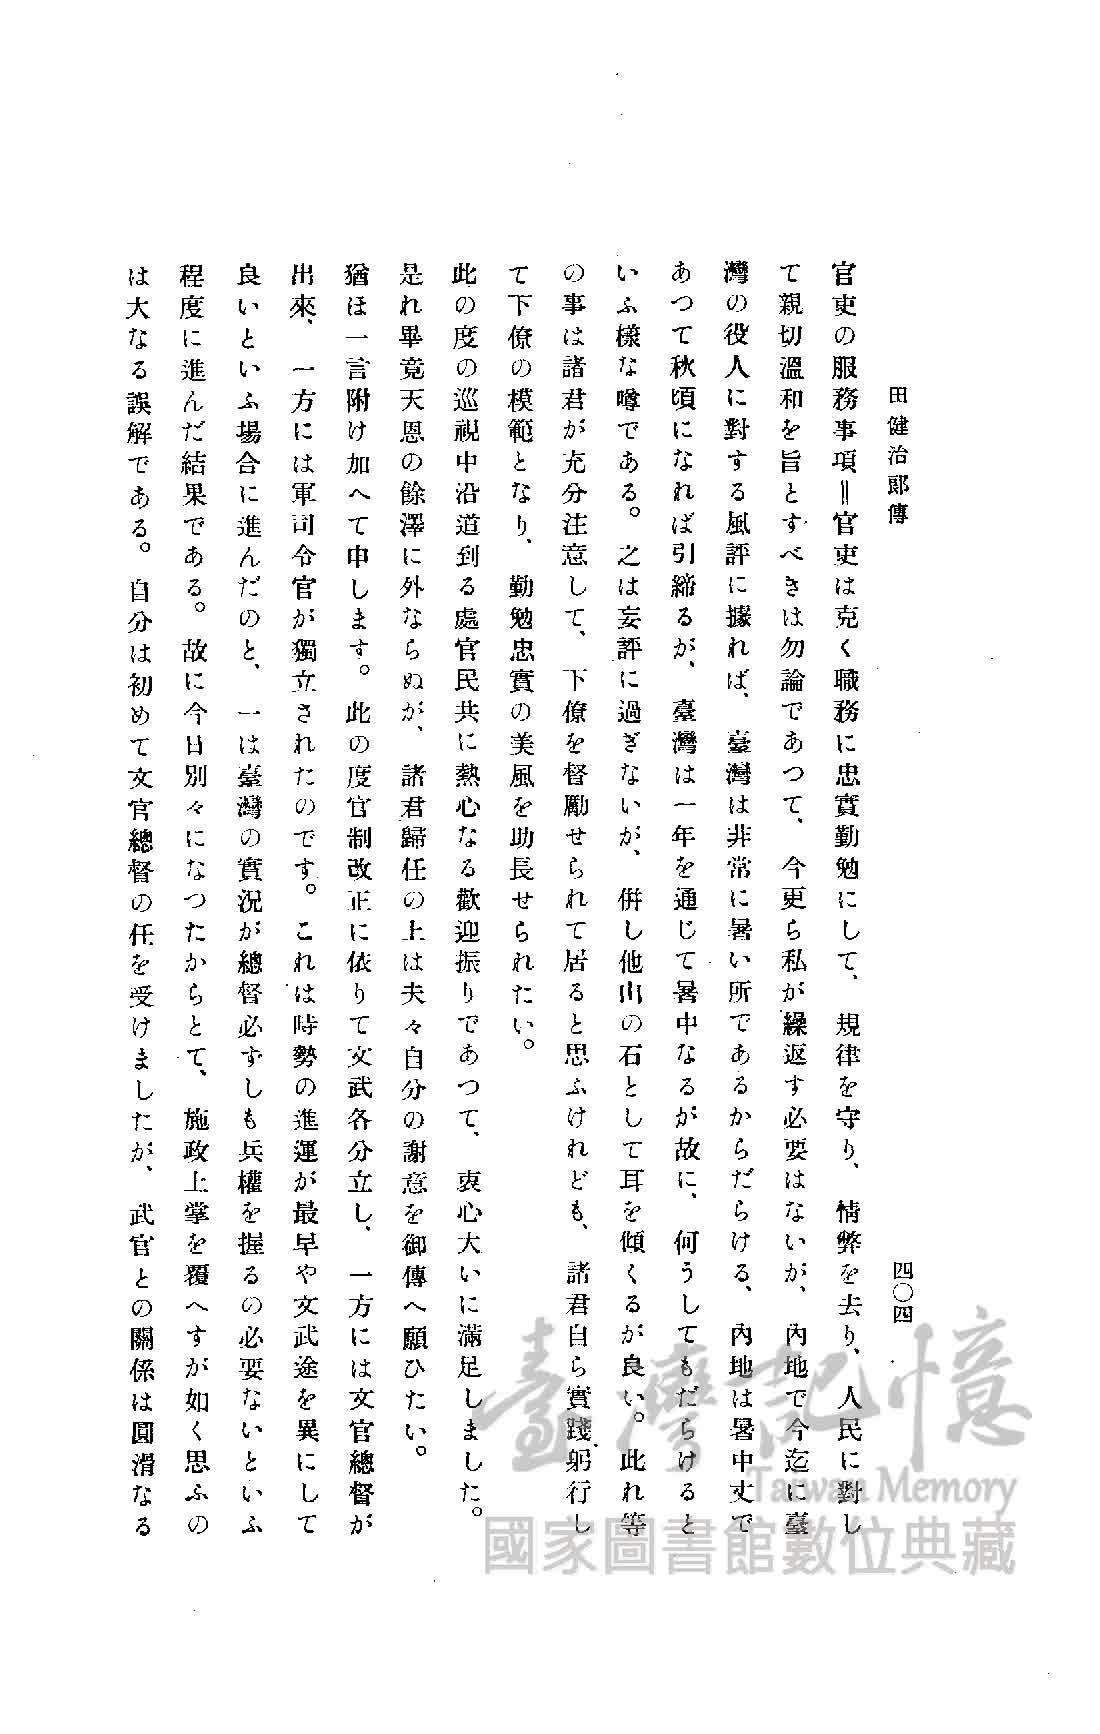 田健治郎傳
四〇四
官吏の服務事項＝官吏は克く職務に忠實勤勉にして、規律を守り、情弊を去り、人民に對し
て親切溫和を旨とすべきは勿論であつて、今更ら私が繰返す必要はないが、內地で今迄に臺
灣の役人に對する風評に據れば、臺灣は非常に暑い所であるからだらける、內地は暑中丈で
あつて秋頃になれば引締るが、臺灣は一年を通じて暑中なるが故に、何うしてもだらけると
いふ樣な噂である。之は妄評に過ぎないが、併し他山の石として耳を傾くるが良い。此れ等
の事は諸君が充分注意して、下僚を督勵せられて居ると思ふけれども、諸君自ら實踐躬行し
て下僚の模範となり、勤勉忠實の美風を助長せられたい。
此の度の巡視中沿道到る處官民共に熱心なる歡迎振りであつて、衷心大いに滿足しました。
是れ畢竟天恩の餘澤に外ならぬが、諸君歸任の上は夫々自分の謝意を御傳へ願ひたい。
猶ほ一言附け加へて申します。此の度官制改正に依りて文武各分立し、一方には文官總督が
出來、一方には軍司令官が獨立されたのです。これは時勢の進運が最早や文武途を異にして
良いといふ場合に進んだのと、一は臺灣の實況が總督必ずしも兵權を握るの必要ないといふ
程度に進んだ結果である。故に今日別々になつたからとて、施政上掌を覆へすが如く思ふの
は大なる誤解である。自分は初めて文官總督の任を受けましたが、武官との關係は圓滑なる
臺灣記憶
Taiwan Memory
國家圖書館數位典藏